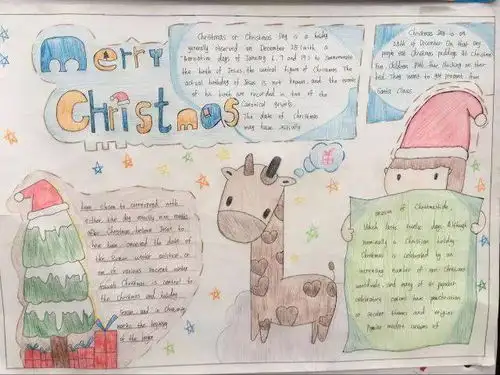 Merry
Christmas
Christmas or Christmas Day is a holiday
generally observed on December 25 (with
alternative days of January 6, 7 and 19) to commemorate
the birth of Jesus, the central figure of Christmas. The
actual birthday of Jesus is not known and the
of his birth are recorded in two of the
Canonical gospels.
The date of Christmas
may have initially
Christmas Day is on
25th of December. On that day
people eat Christmas puddings. At Christmas
Eve, children put their stocking on their
bed. They want to get present from
Santa Claus.
been chosen to correspond with
either the day exactly nine months
after Christmas before Jesus to
have been conceived the date of
the Roman winter solstice or
on of various ancient winter
Christmas is central to
the Christmas and holiday
season and in Christianity
marks the beginning
of the larger
season of Christmastide
Which lasts twelve days. Although
nominally a Christian holiday
Christmas is celebrated by an
increasing number of non-Christians
worldwide and many of its popular
celebratory customs have
or secular themes and origins
Popular modern customs of